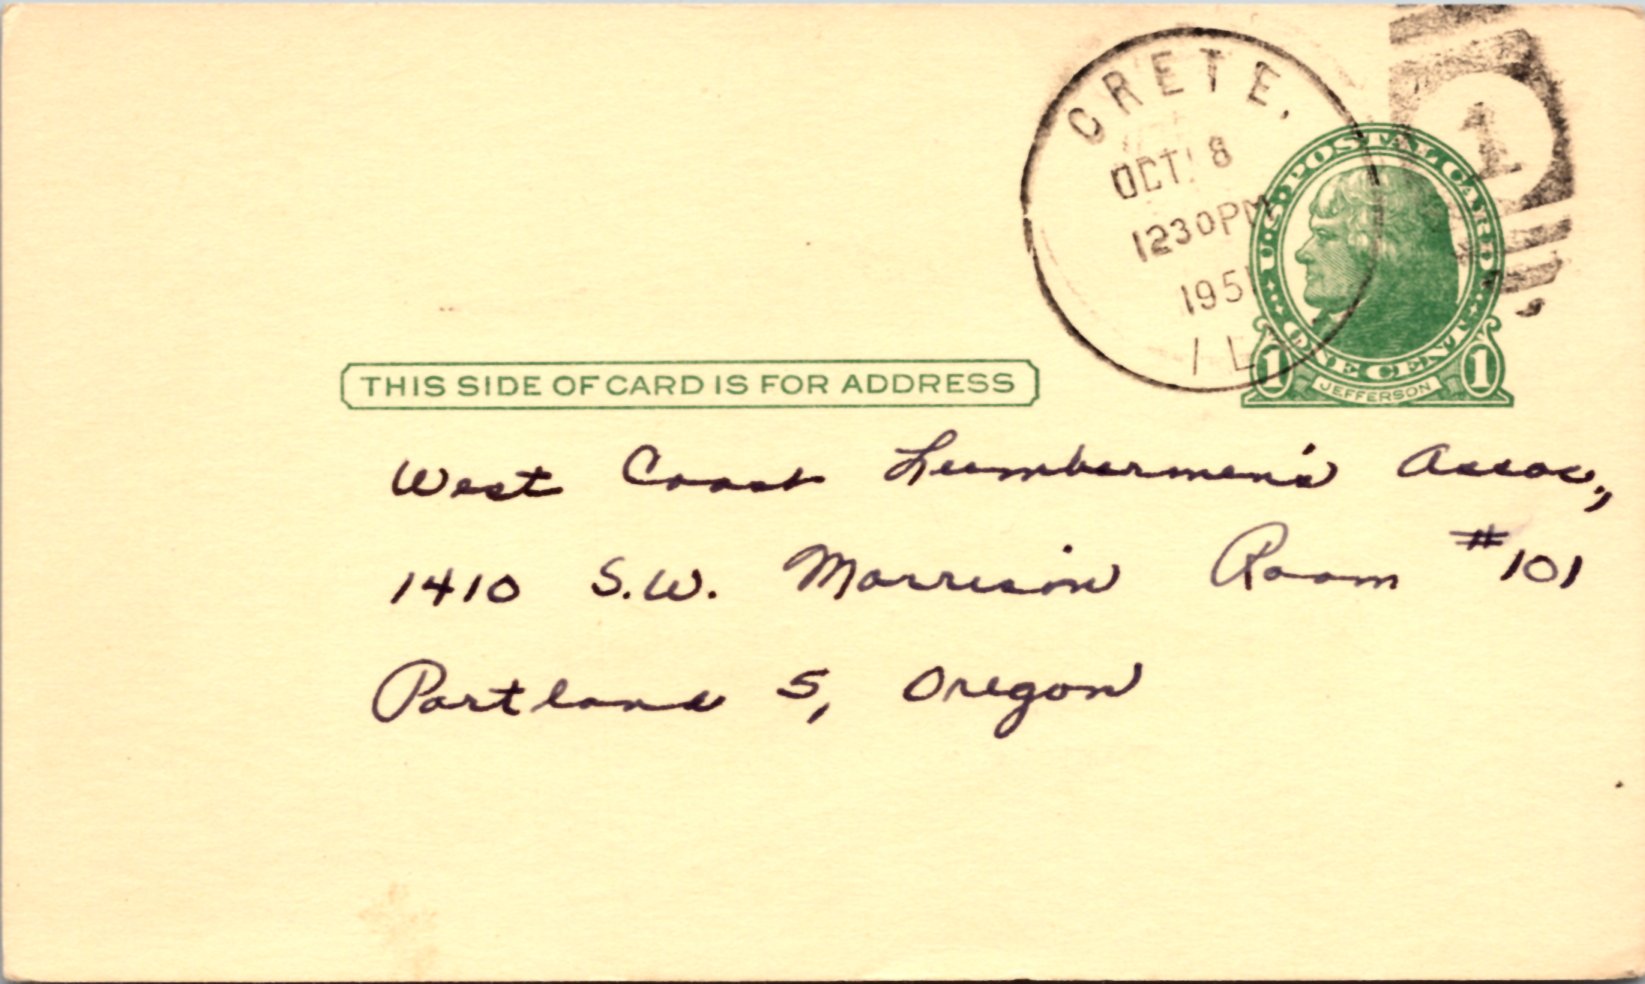 CRETE,
OCT 8
1230PM
1951
ILL
1
U.S. POSTAL CARD
ONE CENT
1 JEFFERSON 1
THIS SIDE OF CARD IS FOR ADDRESS
West Coast Lumbermen's Assoc.,
1410 S.W. Morrison Room #101
Portland 5, Oregon